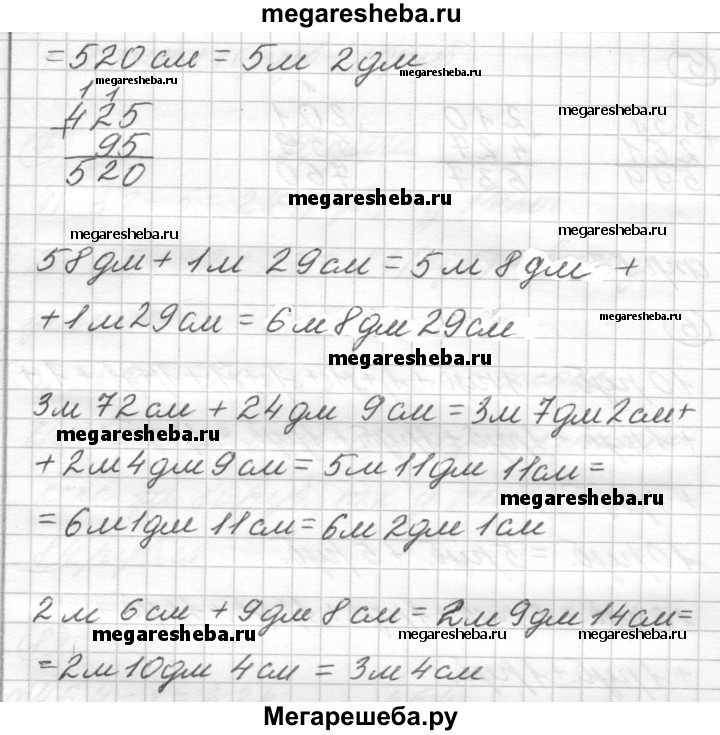 megaresheba.ru
= 520 см = 5 м 2 дм
megaresheba.ru
megaresheba.ru
1 1
megaresheba.ru
+ 425
95
520
megaresheba.ru
megaresheba.ru
megaresheba.ru
58 дм + 1 м 29 см = 5 м 8 дм +
+ 1 м 29 см = 6 м 8 дм 29 см
megaresheba.ru
megaresheba.ru
3 м 72 см + 24 дм 9 см = 3 м 7 дм 2 см +
megaresheba.ru
+ 2 м 4 дм 9 см = 5 м 11 дм 11 см =
megaresheba.ru
= 6 м 1 дм 11 см = 6 м 2 дм 1 см
2 м 6 см + 9 дм 8 см = 2 м 9 дм 14 см =
megaresheba.ru
megaresheba.ru
megaresheba.ru
= 2 м 10 дм 4 см = 3 м 4 см
Мегарешеба.ру